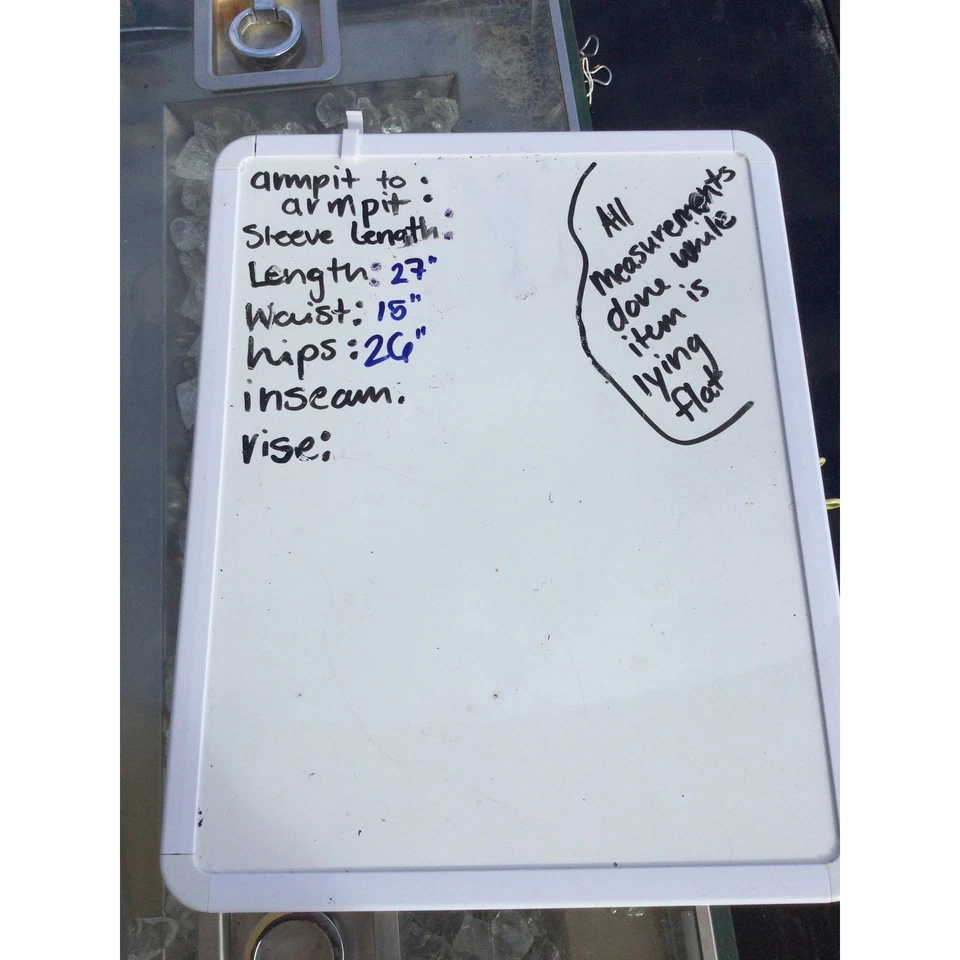 armpit to :
armpit :
Sleeve Length:
Length: 27"
Waist: 15"
hips: 26"
inseam:
rise:
All
measurements
done while
item is
lying
flat